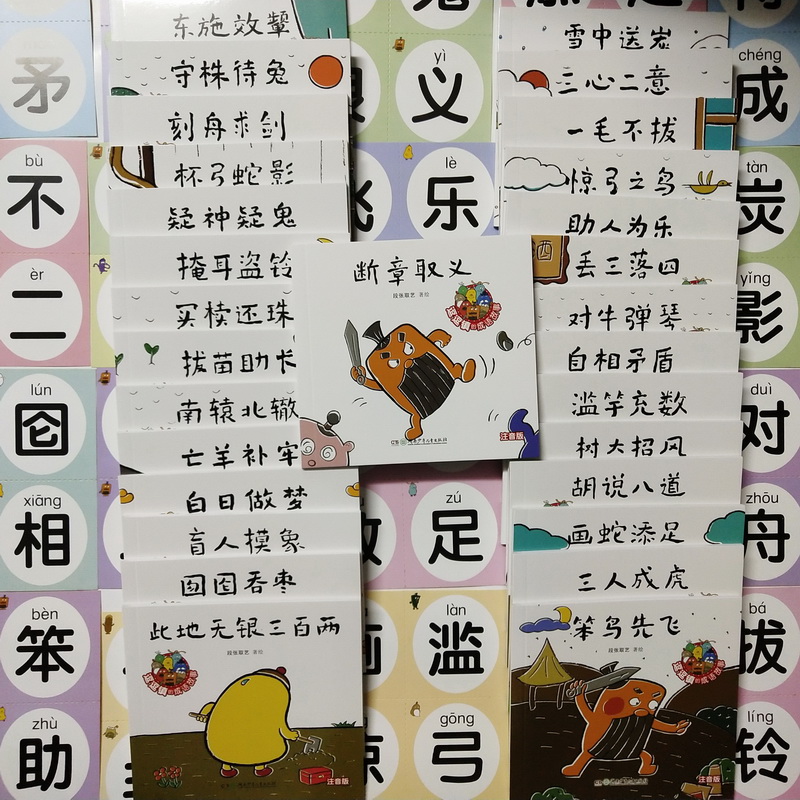 矛
bù
不
èr
二
lún
囵
xiāng
相
bèn
笨
zhù
助
东施效颦
守株待兔
刻舟求剑
杯弓蛇影
疑神疑鬼
掩耳盗铃
买椟还珠
拔苗助长
南辕北辙
亡羊补牢
白日做梦
盲人摸象
囫囵吞枣
此地无银三百两
段张取艺 著绘
逗逗镇的成语故事
注音版
yì
义
lè
乐
断章取义
段张取艺 著绘
逗逗镇的成语故事
注音版
zú
足
làn
滥
gōng
弓
雪中送炭
三心二意
一毛不拔
惊弓之鸟
助人为乐
丢三落四
对牛弹琴
自相矛盾
滥竽充数
树大招风
胡说八道
画蛇添足
三人成虎
笨鸟先飞
段张取艺 著绘
逗逗镇的成语故事
注音版
chéng
成
tàn
炭
yǐng
影
duì
对
zhōu
舟
bá
拔
líng
铃